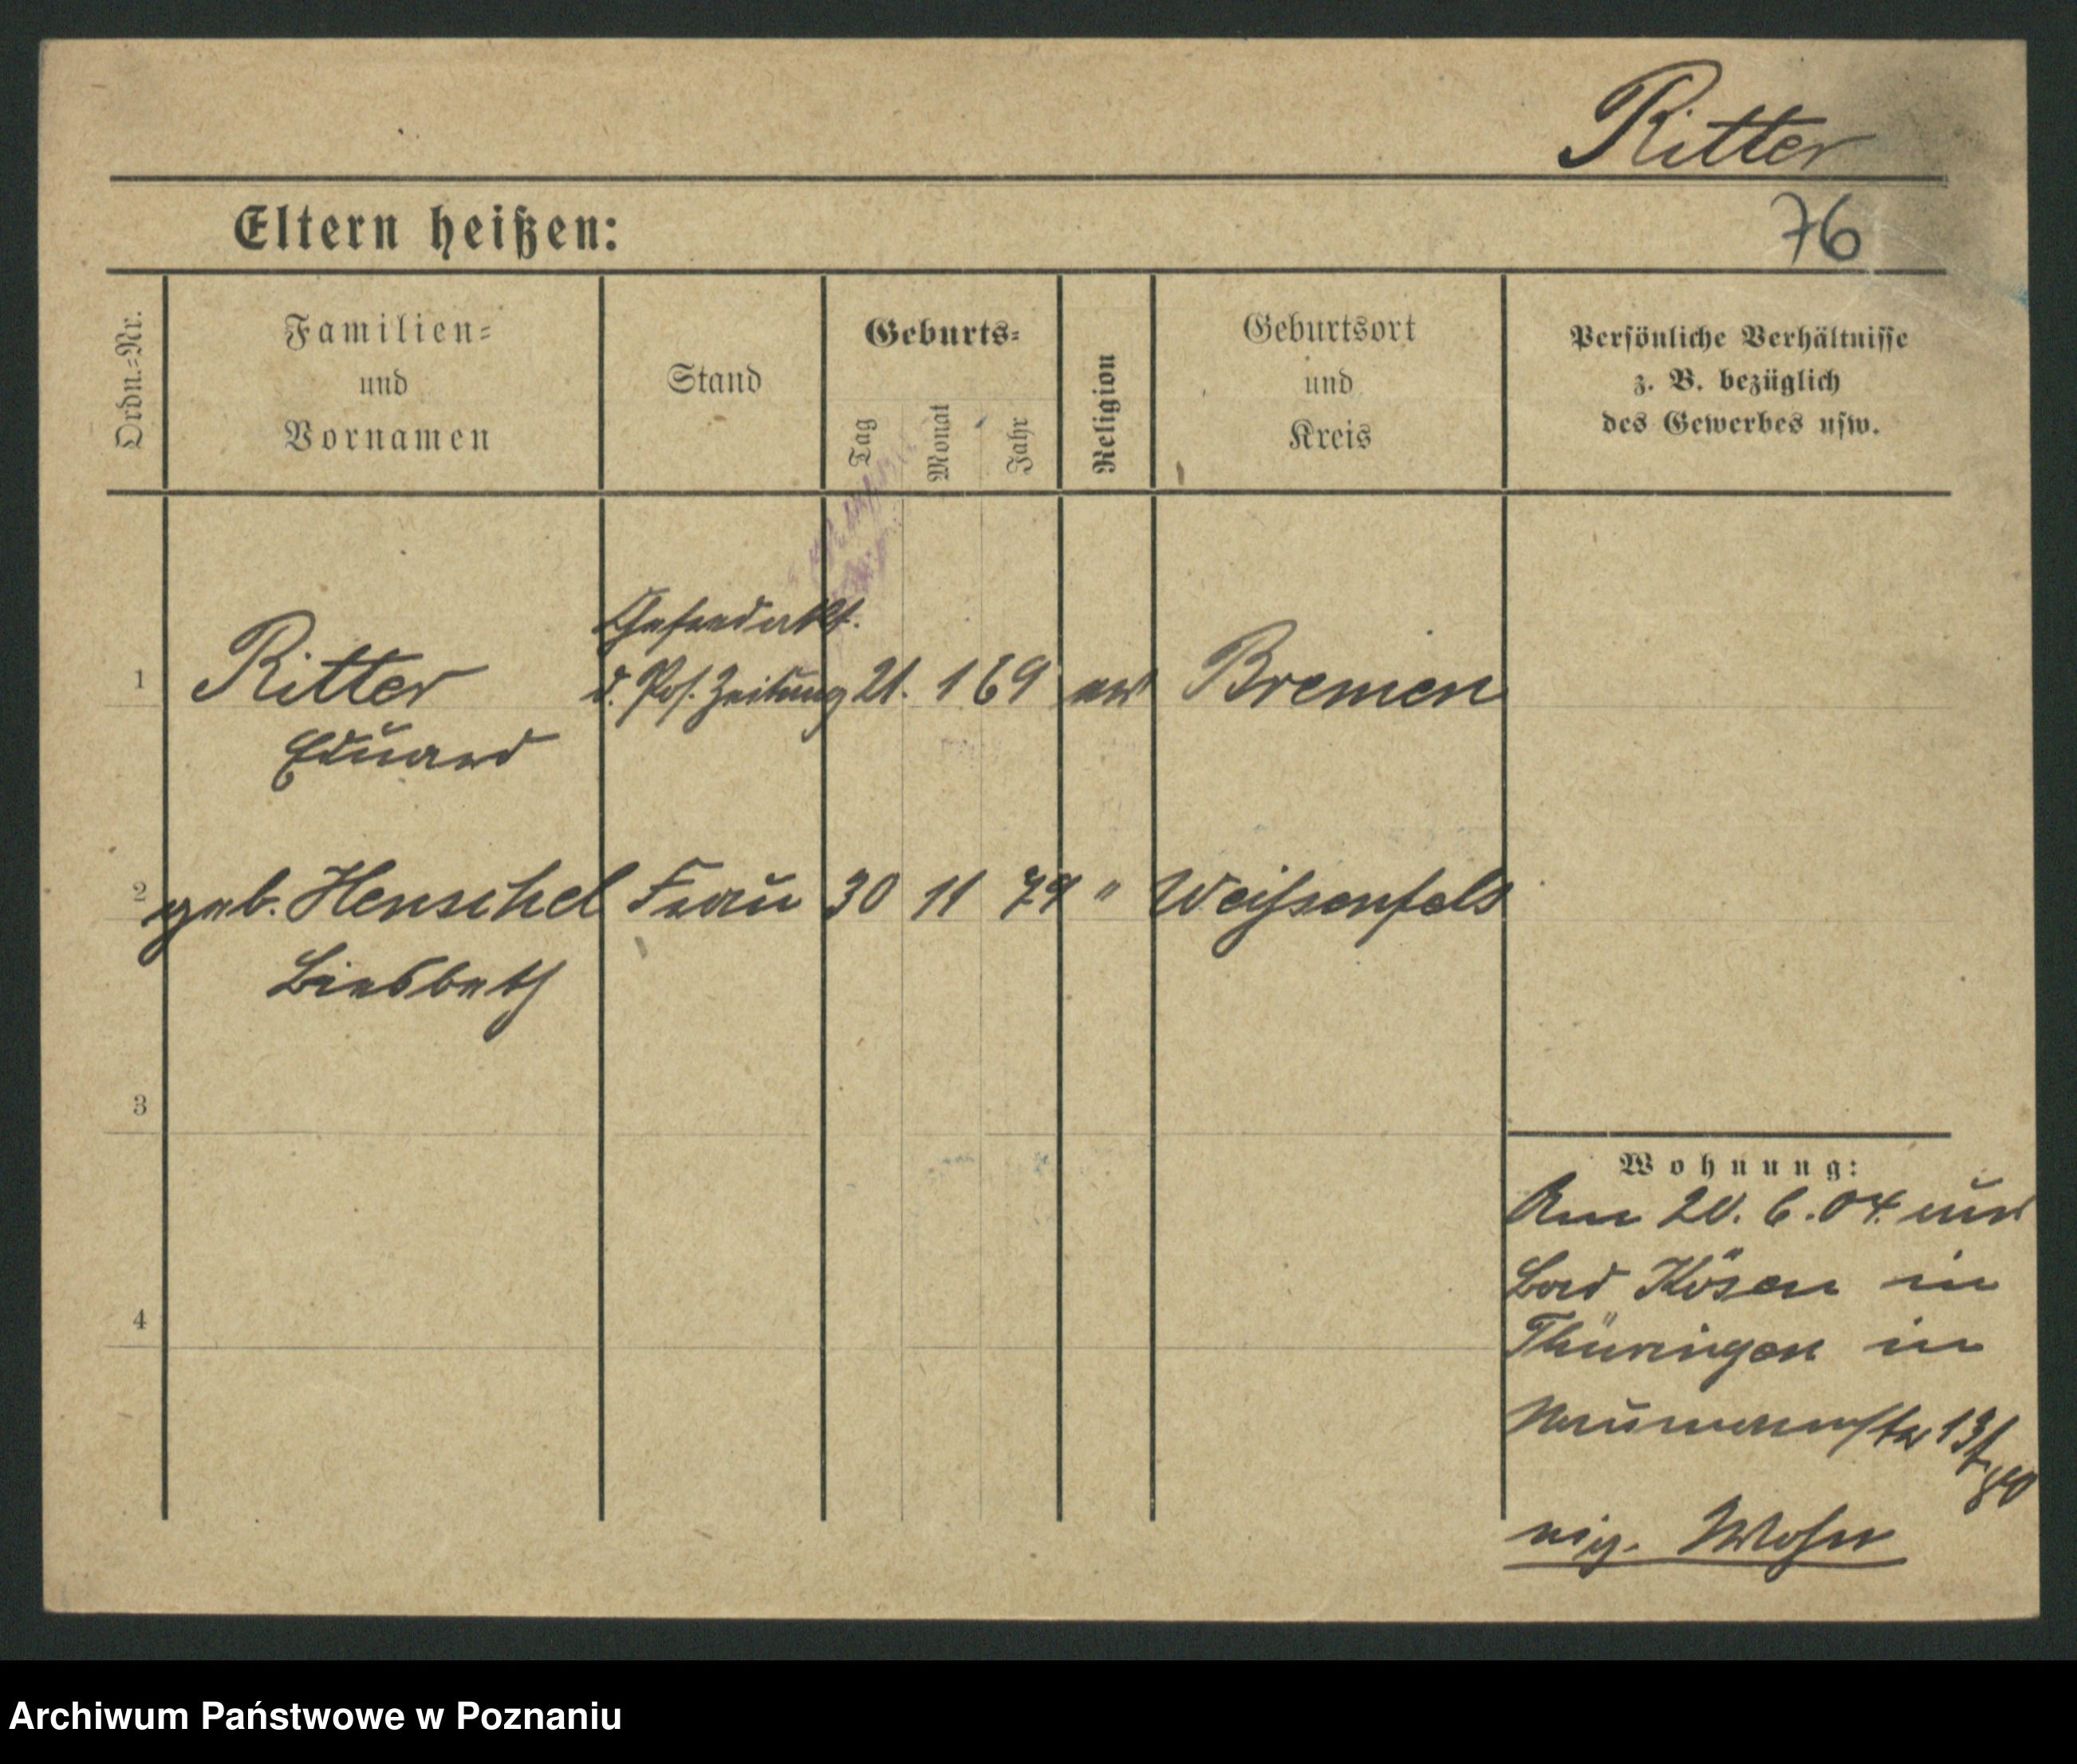 Ritter
76
Eltern heißen:
Ordn.=Nr.
Familien=
und
Vornamen
Stand
Geburts=
Tag
Monat
Jahr
Religion
Geburtsort
und
Kreis
Persönliche Verhältnisse
z. B. bezüglich
des Gewerbes usw.
1
Ritter
Eduard
d. Pos. Zeitung
21. 1 69
ev
Bremen
2
geb. Henschel
Liesbeth
Frau
30 11 79
"
Weißenfels
3
4
Wohnung:
Am 20. 6. 04.
Bad Kösen in
Thüringen in
Archiwum Państwowe w Poznaniu